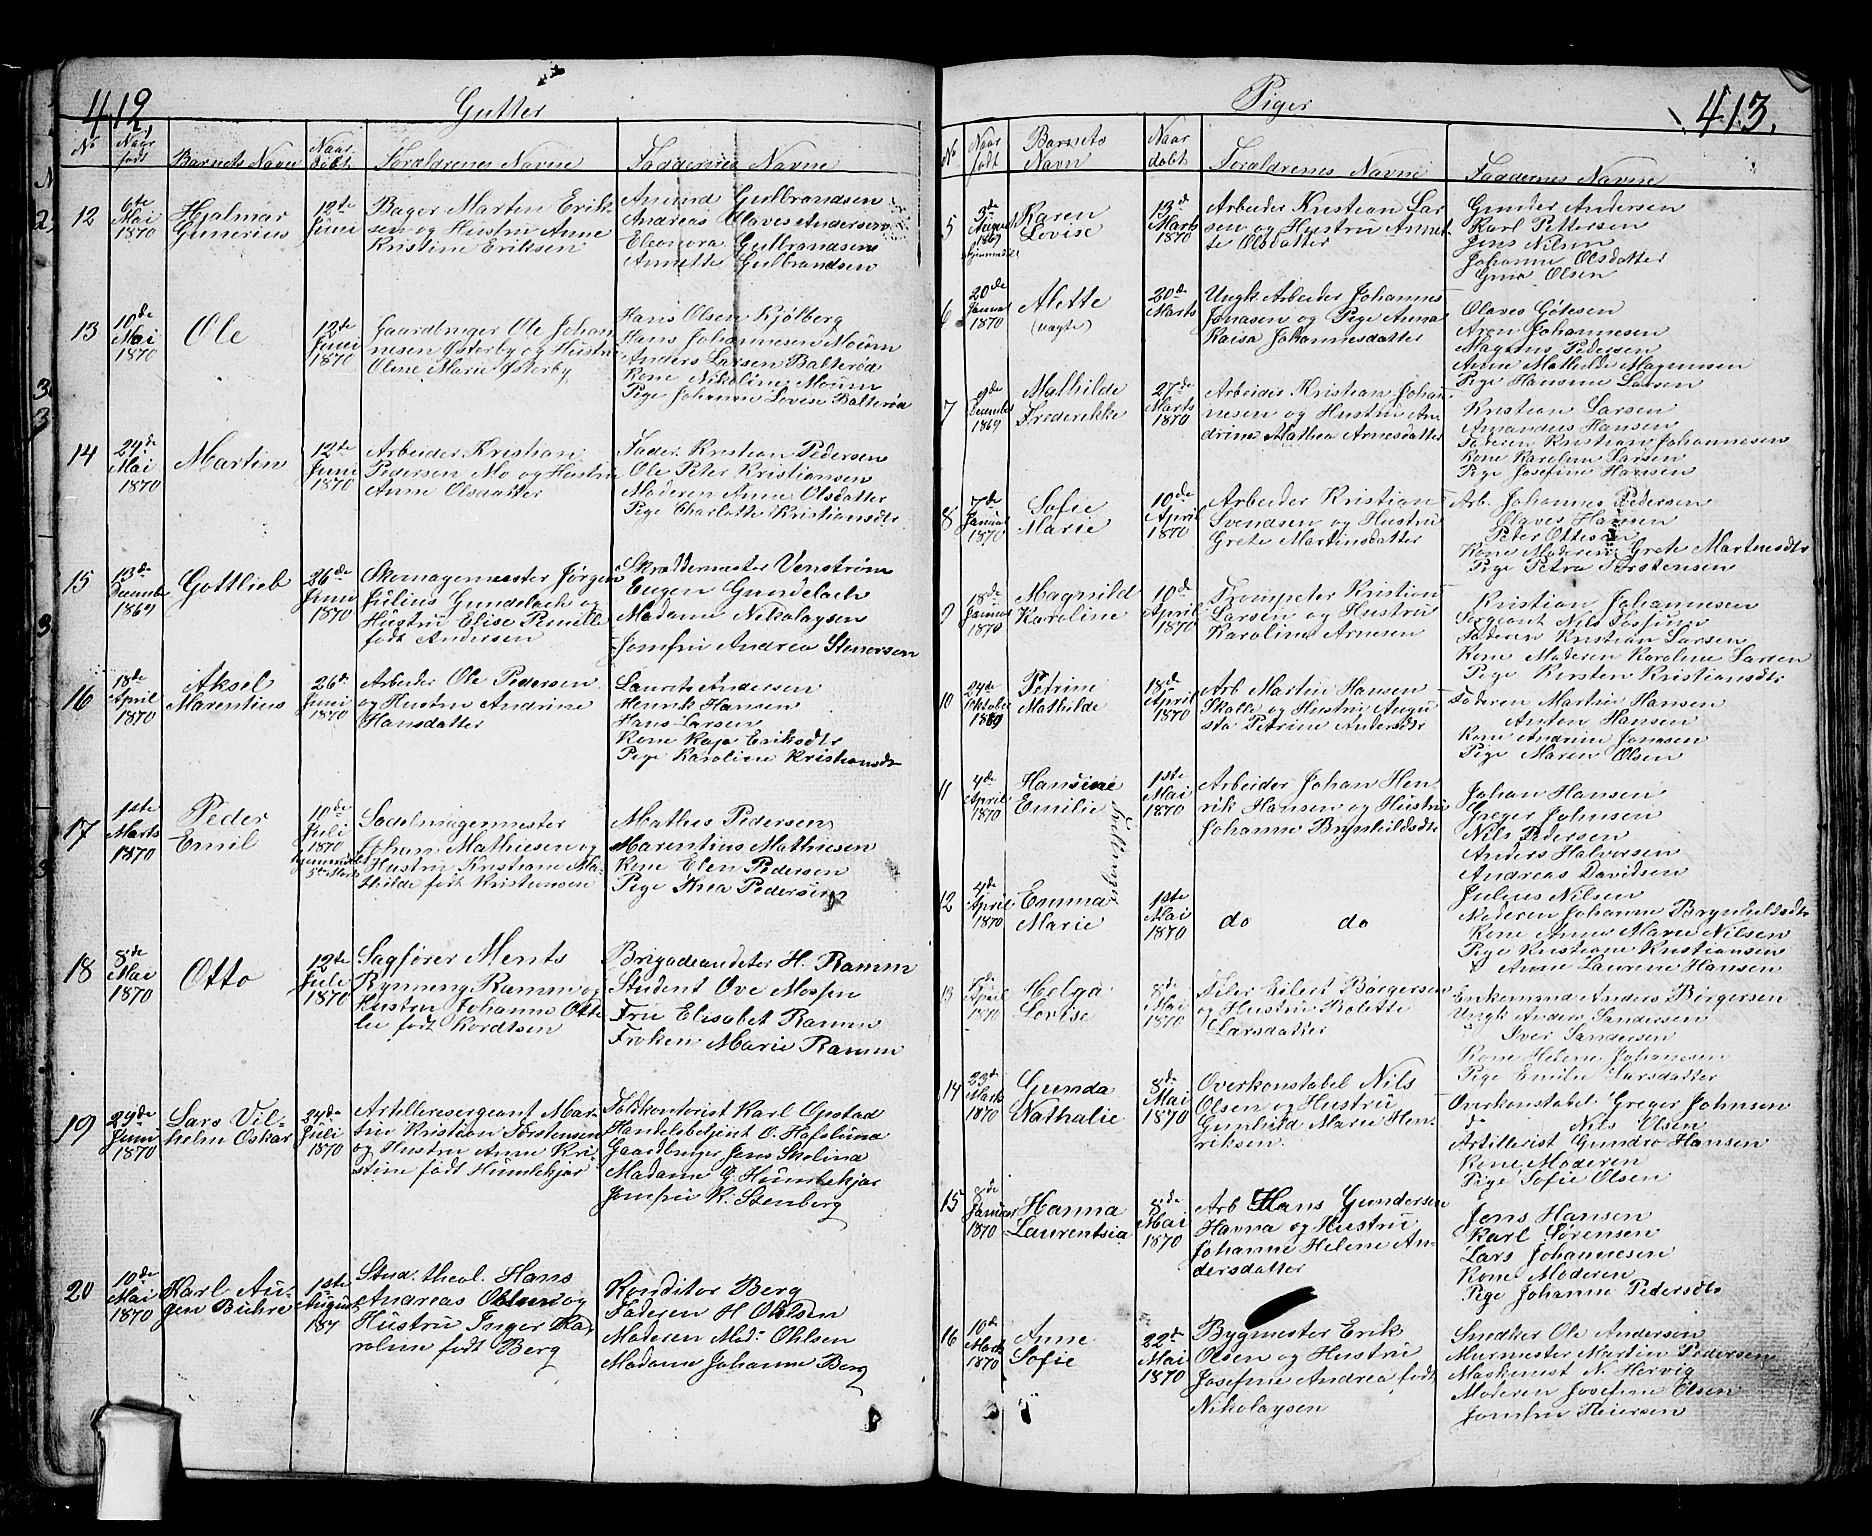 412
Gutter
No
Naar født
Barnets Navn
Naar døbt
Forældrenes Navne
Faddernes Navne
12
6te Mai 1870
Hjalmar
Gunerius
12te Juni
Bager Martin Erik-
sen og Hustru Anne
Kristine Eriksen
Amund Gulbrandsen
Andreas Olaves Andersen
Eleonora Gulbrandsen
Annette Gulbrandsen
13
10de Mai 1870
Ole
12te Juni 1870
Gaardbruger Ole Johan
nesen Østerby og Hustru
Olene Marie Østerby
Hans Olsen Kjølberg
Hans Johannesen Moum
Anders Larsen Balterød
Kone Nikoline Moum
Pige Johanne Lovise Balterød
14
24de Mai 1870
Martin
12te Juni 1870
Arbeider Kristian
Pedersen Mo og Hustru
Anne Olsdatter
Fader Kristian Pedersen
Ole Peter Kristiansen
Moderen Anne Olsdatter
Pige Charlotte Kristiansdtr
15
13de Decembr 1869
Gottlieb
26de Juni 1870
Skomagermester Jørgen
Julius Gundelach og
Hustru Elise Pernille
født Andersen
Skræddermester Venstrøm
Eugen Gundelach
Madame Nikolaysen
Jomfru Andrea Stenersen
16
18de April 1870
Aksel
Marentius
26de Juni 1870
Arbeider Ole Pedersen
og Hustru Andrine
Hansdatter
Laurits Andersen
Henrik Hansen
Hans Larsen
Kone Kaja Eriksdtr
Pige Karoline Kristiansdtr
17
1ste Marts 1870
Peder
Emil
10de Juli 1870
Hjemmedøbt
5te Marts
Sadelmagermester
Johan Mathiesen og
Hustru Kristiane Ma-
thilde født Kristiansen
Mathis Pedersen
Marentius Mathiesen
Kone Elen Pedersen
Pige Thea Pedersen
18
8de Mai 1870
Otto
12te Juli 1870
Sagfører Ments
Rynning Ramm og
Hustru Johanne Otte
lie født Kordtsen
Brigadeauditør H. Ramm
Student Ove Mossin
Fru Elisabet Ramm
Frøken Marie Ramm
19
29de Juni 1870
Lars Vil-
helm Oskar
24de Juli 1870
Artillerisergeant Mar-
tin Kristian Torstensen
og Hustru Anne Kri-
stine født Humlekjær
Toldkontorist Karl Opstad
Handelsbetjent O. Hafslund
Gaardbruger Jens Skolina
Madame G Humlekjær
Jomfru K. Stenberg
20
10de Mai 1870
Karl Au-
gen Buhre
1ste August 187
Stud. theol. Hans
Andreas Ohlsen og
Hustru Inger Ka-
roline født Berg
Konditor Berg
Faderen H Ohlsen
Moderen Mad. Ohlsen
Madame Johanne Berg
413.
Piger
No
Naar født
Barnets Navn
Naar døbt
Forældrenes Navne
Faddernes Navne
5
3de August 1869
hjemmedøbt
Karen
Lovise
13de Marts 1870
Arbeider Kristian Lar
sen og Hustru Annet-
te Olsdatter
Gunder Andersen
Karl Pettersen
Jens Nilsen
Johanne Olsdatter
Gina Olsen
6
20de Januar 1870
Alette
(uægte)
20de Marts
Ungk Arbeider Johannes
Jonasen og Pige Anna
Kaisa Johannesdatter
Olaves Gøtesen
Aron Johannesen
Magnus Pedersen
Anne Mathilde Magnusen
Pige Hansine Larsen
7
9de December 1869
Mathilde
Frederikke
27de Marts 1870
Arbeider Kristian Johan
nesen og Hustru An-
drine Mathea Arnesdatter
Kristian Larsen
Amandus Hansen
Faderen Kristian Johannesen
Kone Karoline Larsen
Pige Josefine Hansen
8
7de Januar 1870
Sofie
Marie
10de April 1870
Arbeider Kristian
Svendsen og Hustru
Grete Martinsdatter
Arb. Johannes Pedersen
Olaves Hansen
Peter Ottesen
Kone Moderen Grete Martinsdtr
Pige Petra Torstensen
9
18de Januar 1870
Magnild
Karoline
10de April 1870
Trompeter Kristian
Larsen og Hustru
Karoline Arnesen
Kristian Johannesen
Sergeant Nils Josfsen
Faderen Kristian Larsen
Kone Moderen Karoline Larsen
Pige Kirsten Kristiansdtr
10
24de Oktober 1869
Petrine
Mathilde
18de April 1870
Arb Martin Hansen
Skalle og Hustru Augu
sta Petrine Andersdtr
Faderen Martin Hansen
Anton Hansen
Kone Andrine Jonasen
Pige Maren Olsen
11
4de April 1870
Hansine
Emilie
Tvillinger
1ste Mai 1870
Arbeider Johan Hen
rik Hansen og Hustru
Johanne Brynhildsdtr
Johan Hansen
Greger Johnsen
Nils Pedersen
Anders Halvorsen
Andreas Davidsen
12
4de April 1870
Emma
Marie
1ste Mai 1870
do do
Julius Nilsen
Moderen Johanne Brynhildsdtr
Kone Anne Marie Nilsen
Pige Kristiane Kristiansen
Anne Laurene Hansen
13
April 1870
Helga
Lovise
8de Mai 1870
Filer Eilert Børgersen
og Hustru Bolette
Larsdatter
Enkemand Anders Børgersen
Ungk Anders Sandersen
Iver Sandersen
Kone Helene Johannesen
Pige Emilie Larsdatter
14
23de Marts 1870
Gunda
Nathalie
8de Mai 1870
Overkonstabel Nils
Olsen og Hustru
Gunhild Marie Hen-
riksen
Overkonstabel Greger Johnsen
do Nils Olsen
Artillerist Gundro Hansen
Kone Moderen
Pige Sofie Olsen
15
8de Januar 1870
Hanna
Laurentsia
8de Mai 1870
Arb Hans Gundersen
Havna og Hustru
Johanne Helene An-
dersdatter
Jens Hansen
Karl Sørensen
Lars Johannesen
Kone Moderen
Pige Johanne Pedersdtr
16
10de Marts 1870
Anne
Sofie
22de Mai 1870
Bygmester Erik
Olsen og Hustru
Josefine Andrea født
Nikolaysen
Snedker Ole Andersen
Murmester Martin Pedersen
Maskinist N. Hervig
Moderen Josefine Olsen
Jomfru Theiersen